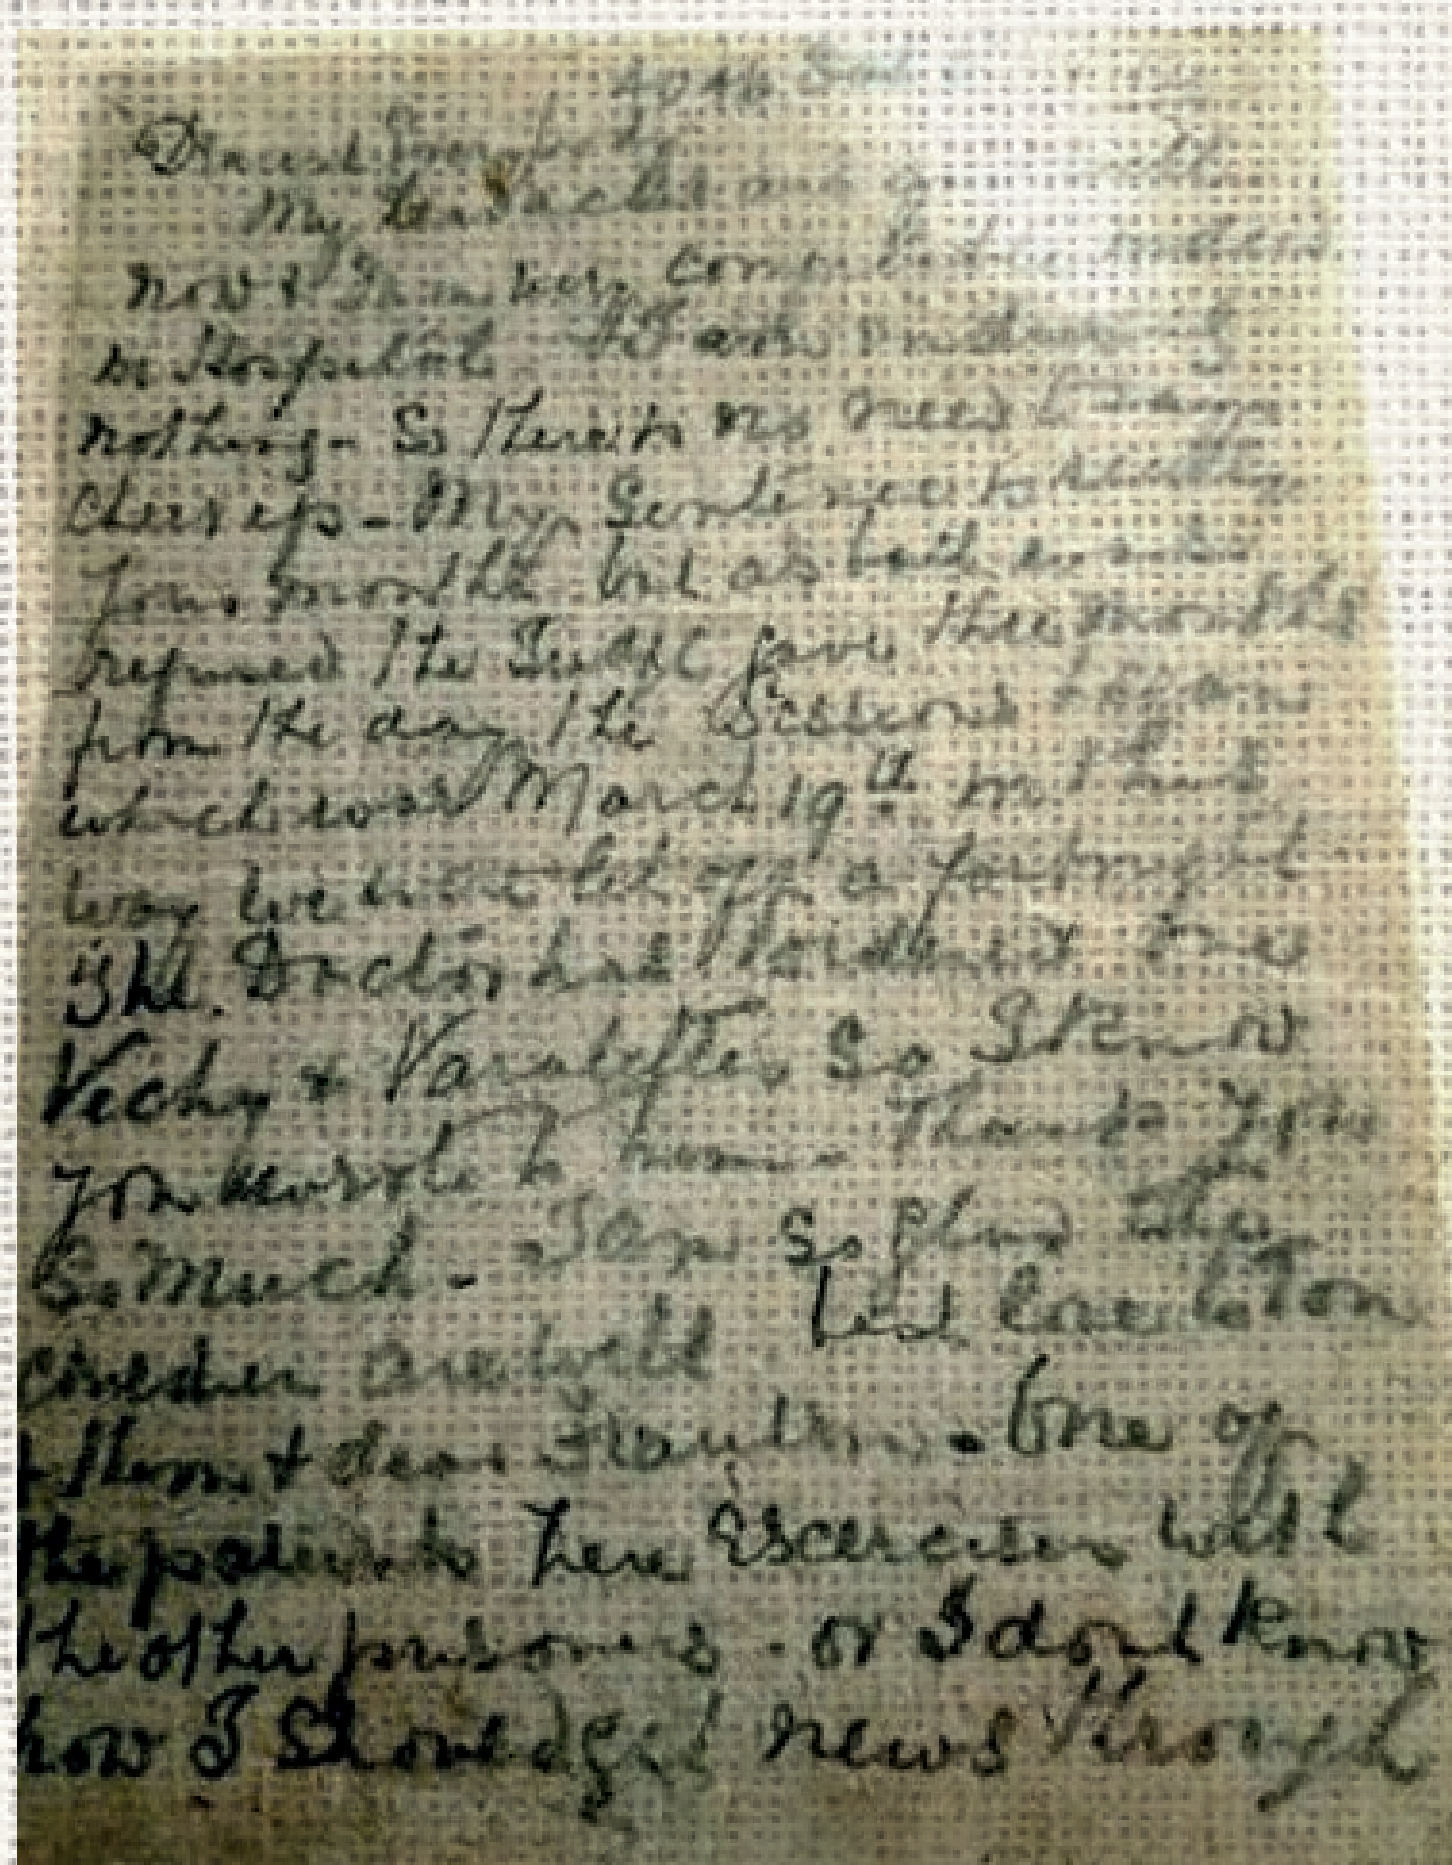 Dearest Everybody
My headaches are
now & I am very comfortable indeed
in Hospital & I am
nothing - So there is no need to
cheer up - My Sentence is really
four months but as bail was
refused the Judge gave three months
from the day the Sessions began
which was March 19th in this
way we were let off a fortnight
The Doctor has ordered me
Vichy & so I know
you wrote to him - Thank you
So much - I am so glad the
are well best love to Tom
& them & dear - One of
the patients here Exercises with
the other prisoners - or I dont know
how I Should get news through